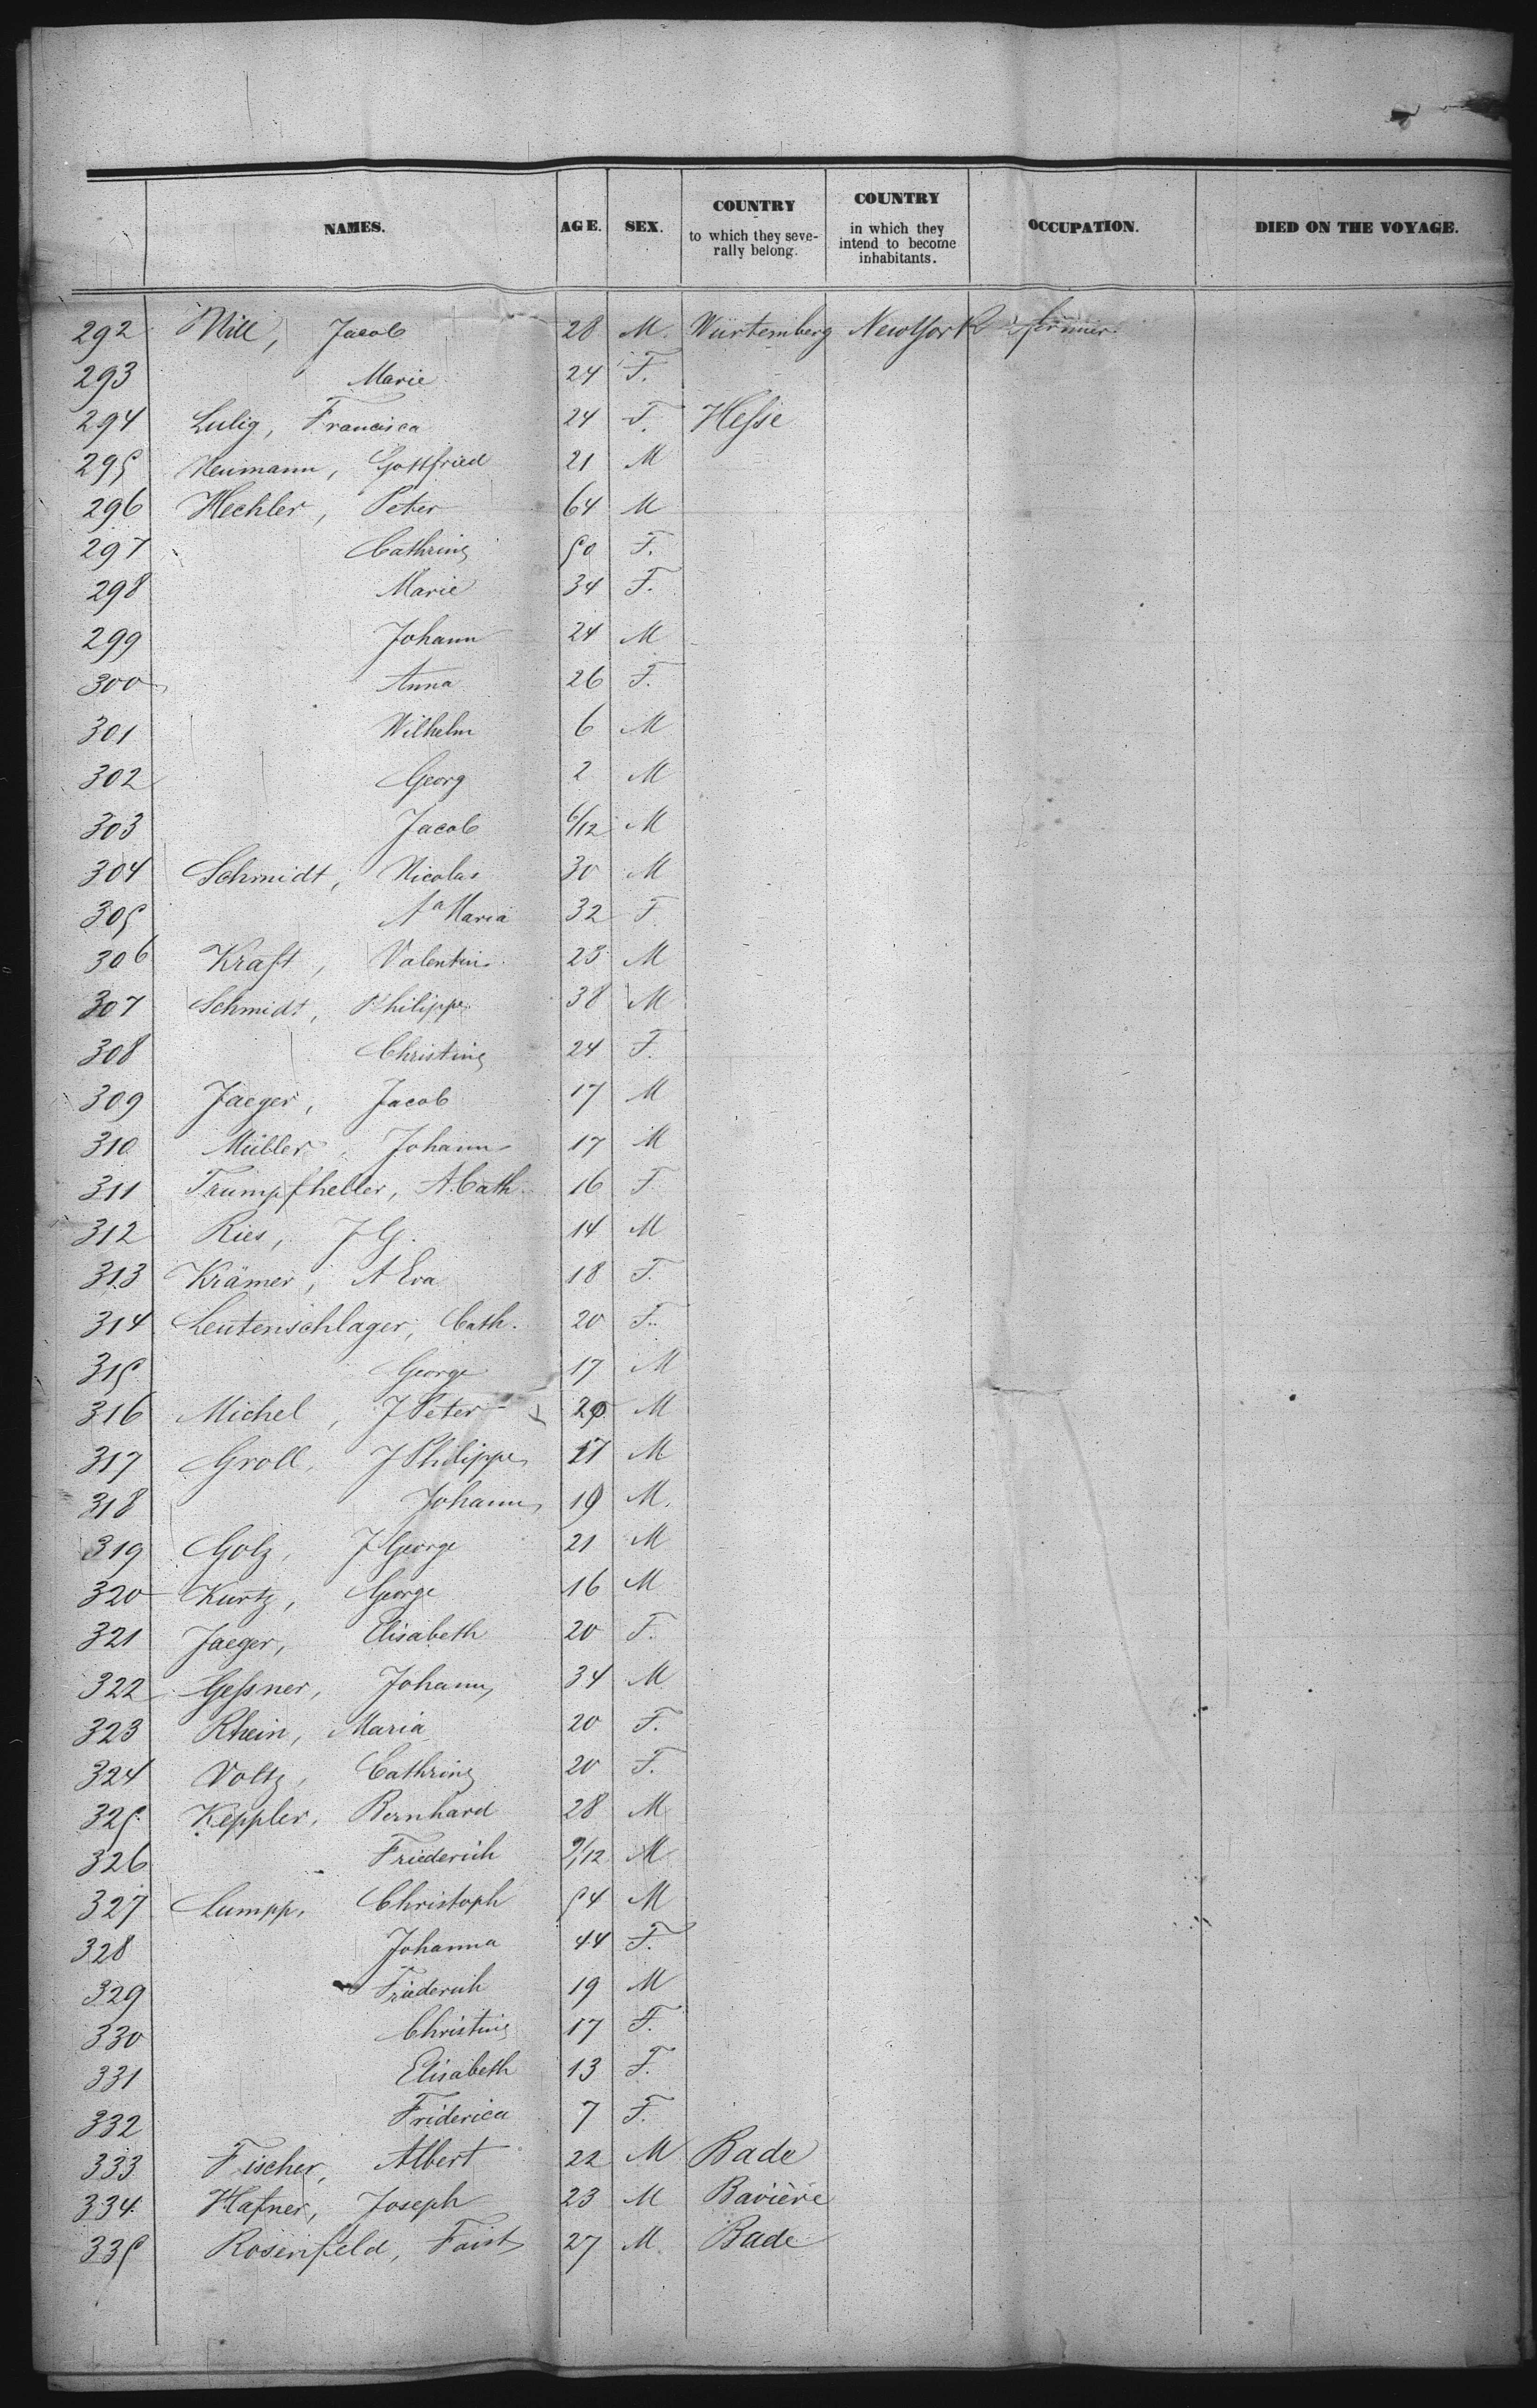 NAMES. AGE. SEX. COUNTRY to which they severally belong. COUNTRY in which they intend to become inhabitants. OCCUPATION. DIED ON THE VOYAGE.
292 Will, Jacob 28 M. Würtemberg New York farmer
293 Marie 24 F.
294 Lulig, Francisca 24 F. Hesse
295 Neumann, Gottfried 21 M
296 Hechler, Peter 64 M
297 Cathrine 50 F.
298 Marie 34 F.
299 Johann 24 M
300 Anna 26 F.
301 Wilhelm 6 M
302 Georg 2 M
303 Jacob 6/12 M
304 Schmidt, Nicolas 30 M
305 Aª Maria 32 F
306 Kraft, Valentin 23 M
307 Schmidt, Philippe 38 M
308 Christine 24 F.
309 Jaeger, Jacob 17 M
310 Müller, Johann 17 M
311 Trumpfheller, A. Cath. 16 F
312 Ries, J G. 14 M
313 Krämer, A Eva 18 F.
314 Leutenschlager, Cath. 20 F.
315 George 17 M
316 Michel, J Peter 20 M
317 Groll, J Philippe 17 M
318 Johann 19 M.
319 Golz, J George 21 M
320 Kurtz, George 16 M
321 Jaeger, Elisabeth 20 F.
322 Gessner, Johann 34 M
323 Rhein, Maria 20 F.
324 Voltz, Cathrine 20 F.
325 Keppler, Bernhard 28 M
326 Friederich 9/12 M
327 Lumpp, Christoph 54 M
328 Johanna 44 F.
329 Friederich 19 M
330 Christine 17 F.
331 Elisabeth 13 F.
332 Friderica 7 F.
333 Fischer, Albert 22 M Bade
334 Hafner, Joseph 23 M Bavière
335 Rosenfeld, Faist 27 M. Bade